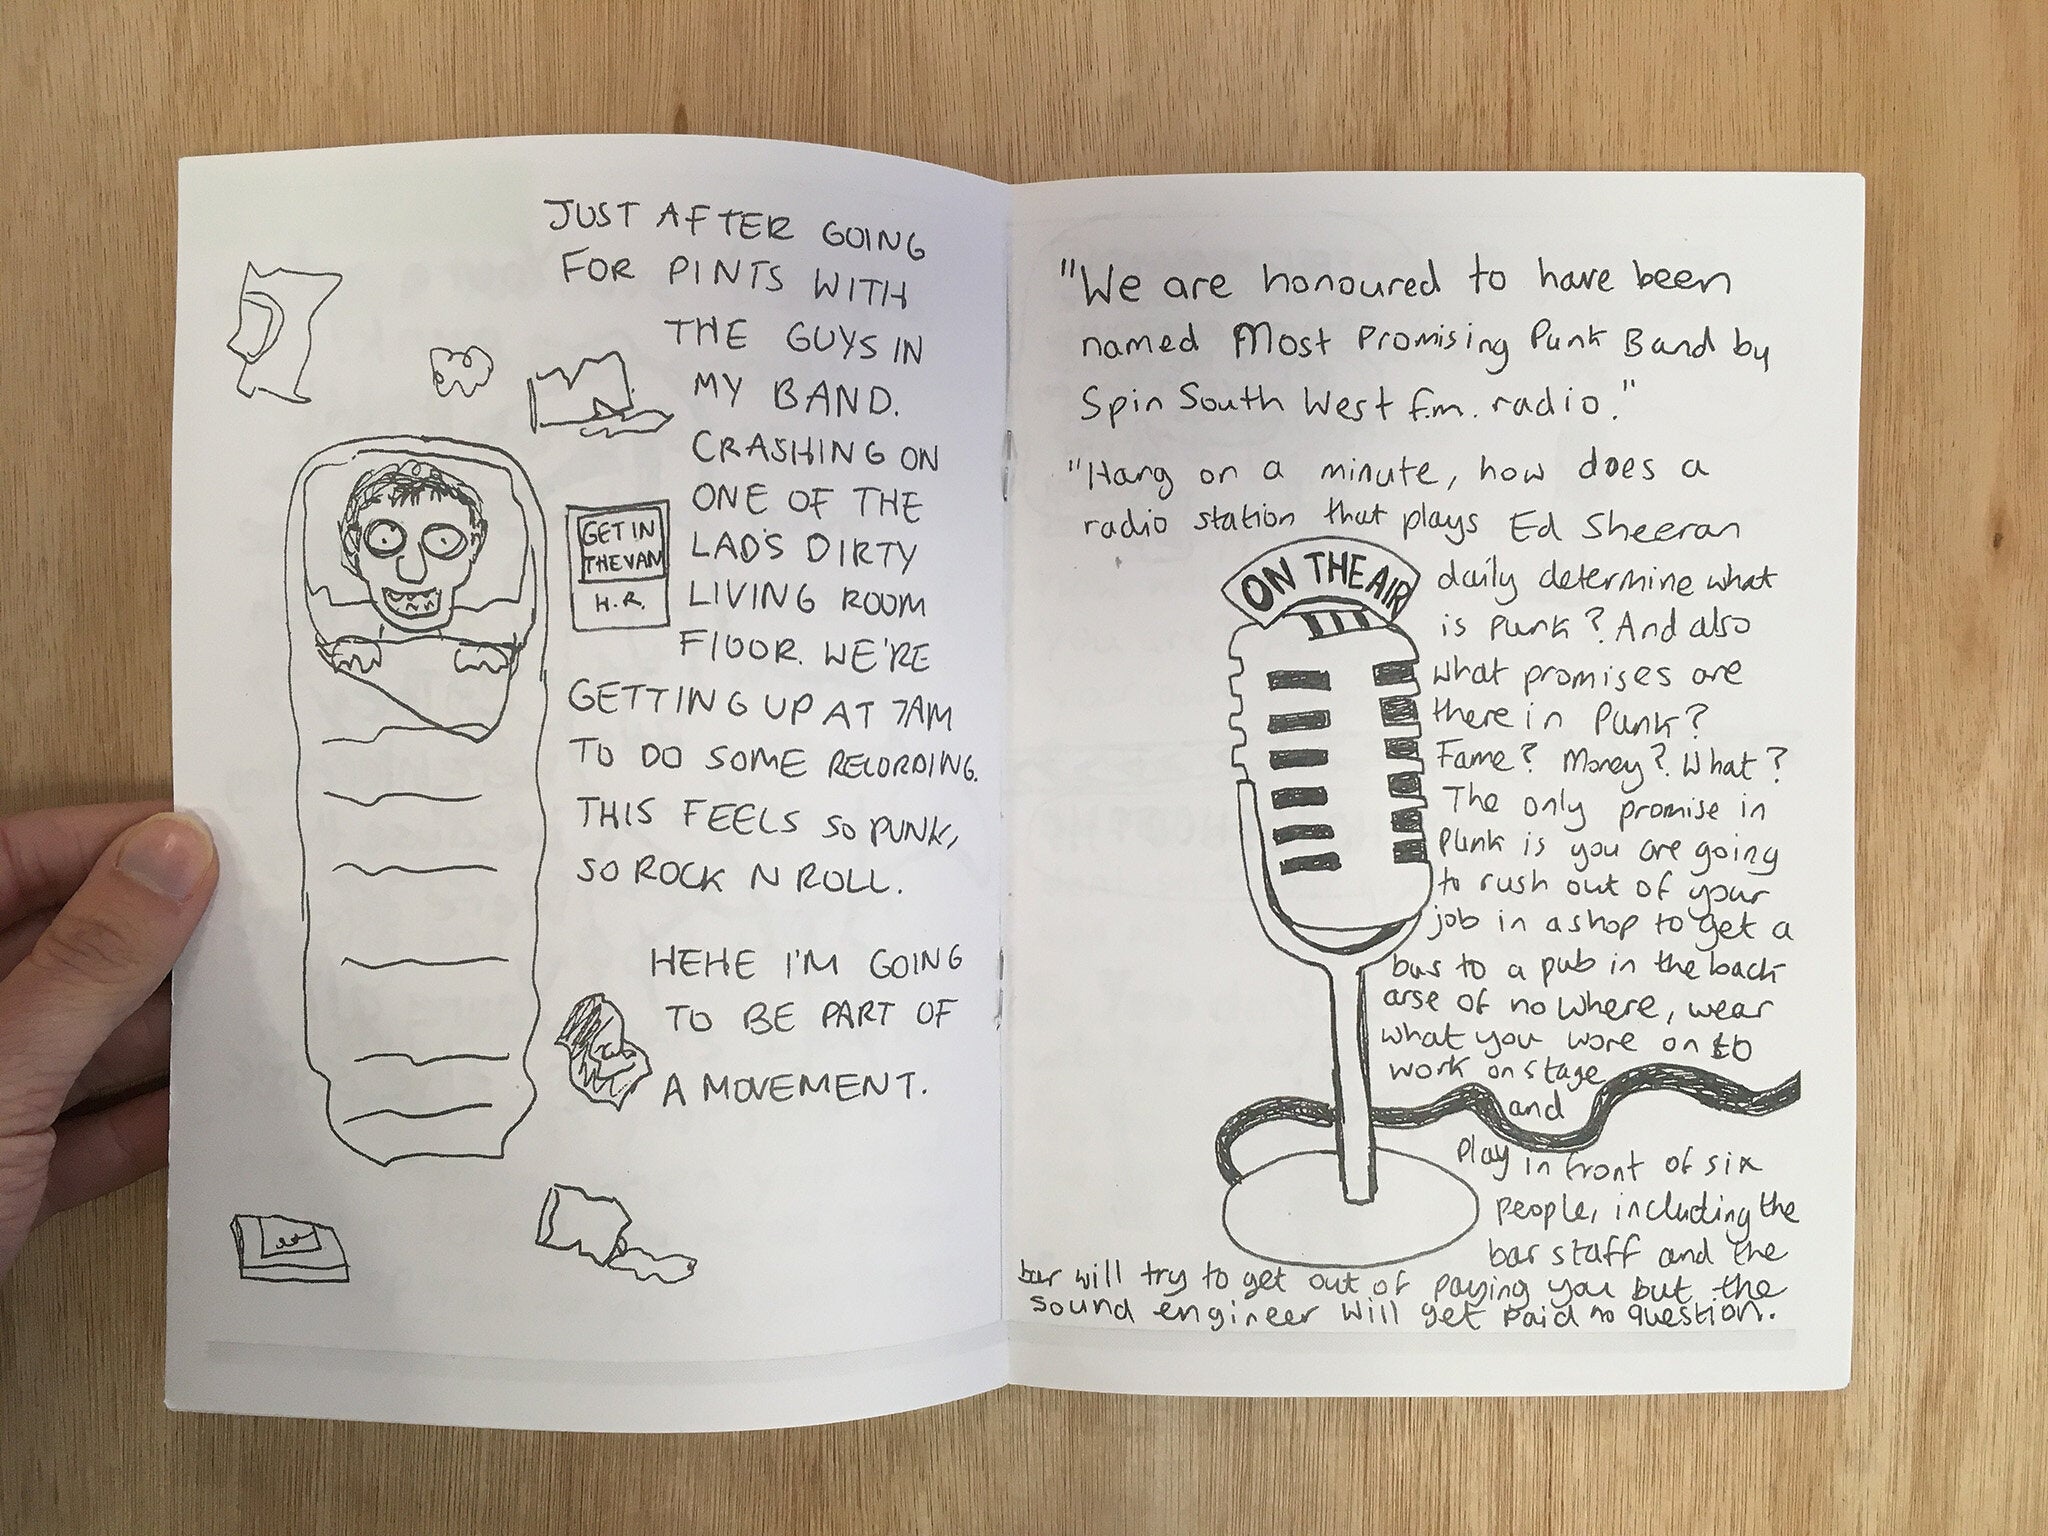 JUST AFTER GOING
FOR PINTS WITH
THE GUYS IN
MY BAND.
CRASHING ON
ONE OF THE
LAD'S DIRTY
LIVING ROOM
FLOOR. WE'RE
GETTING UP AT 7AM
TO DO SOME RECORDING.
THIS FEELS SO PUNK,
SO ROCK N ROLL.
HEHE I'M GOING
TO BE PART OF
A MOVEMENT.
GET IN
THE VAN
H.R.
"We are honoured to have been
named Most Promising Punk Band by
Spin South West f.m. radio."
"Hang on a minute, how does a
radio station that plays Ed Sheeran
daily determine what
is Punk? And also
what promises are
there in Punk?
Fame? Money? What?
The only promise in
Punk is you are going
to rush out of your
job in a shop to get a
bus to a pub in the back
arse of no where, wear
what you wore on to
work on stage
and
Play in front of six
people, including the
bar staff and the
bar will try to get out of paying you but the
sound engineer will get paid no question.
ON THE AIR